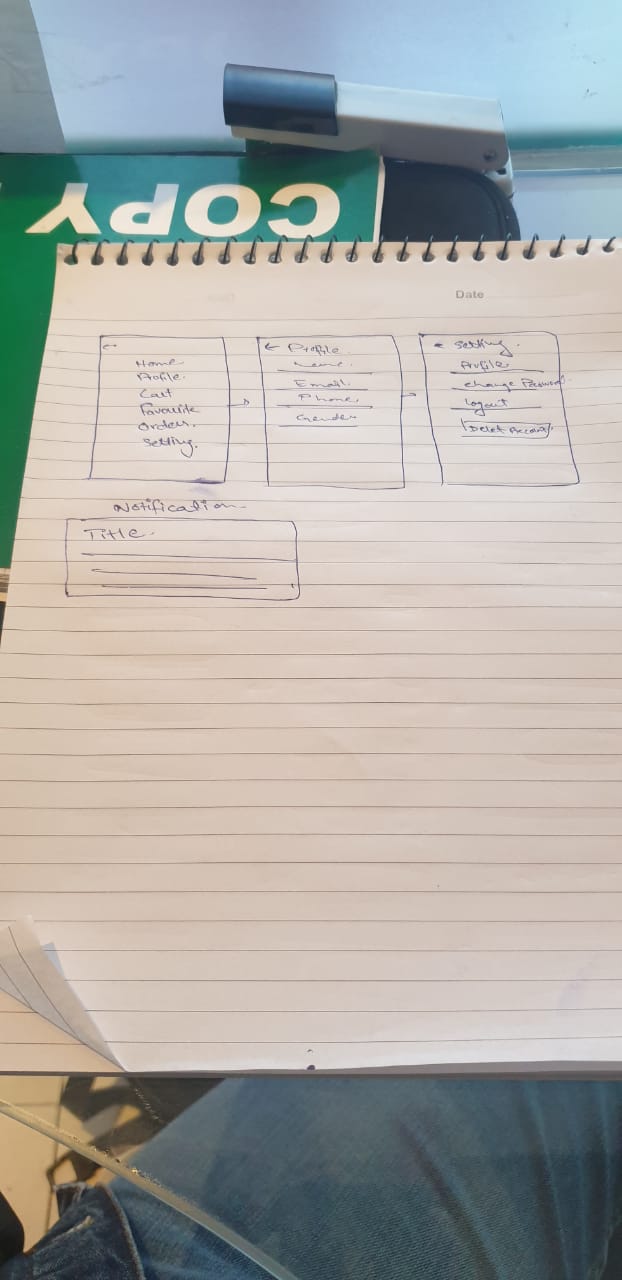 COPY
Date
Home
Profile.
Cart
Favourite
Orders.
Setting.
← Profile.
Name.
Email.
Phone.
Gender
← Setting.
Profile
Change Password.
Logout
Delet Account.
Notification
Title.